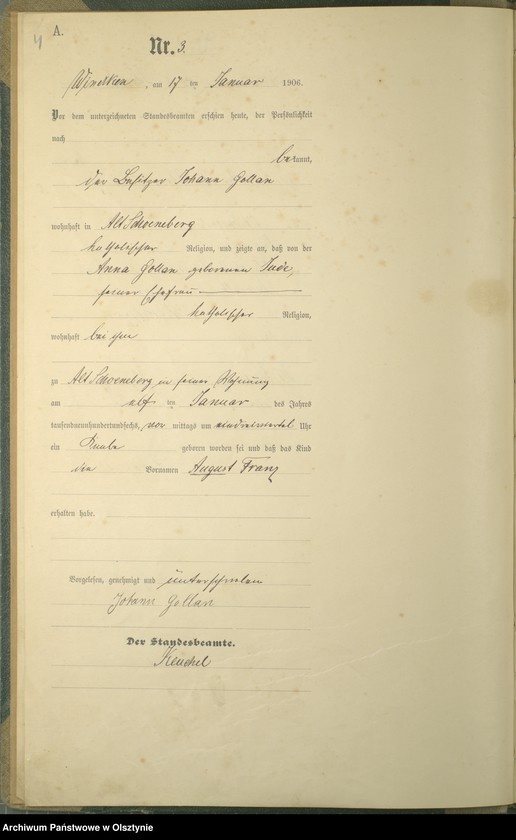 4
A.
Nr. 3.
am 17 ten Januar 1906.
Vor dem unterzeichneten Standesbeamten erschien heute, der Persönlichkeit
nach
bekannt,
der Besitzer Johann Gollan
wohnhaft in Alt Schoeneberg
katholischer Religion, und zeigte an, daß von der
Anna Gollan geborenen
seiner Ehefrau
katholischer Religion,
wohnhaft bei ihm
zu Alt Schoeneberg in seiner Wohnung
am elf ten Januar des Jahres
tausendneunhundertundsechs, vor mittags um eindreiviertel Uhr
ein Knabe geboren worden sei und daß das Kind
die Vornamen August Franz
erhalten habe.
Vorgelesen, genehmigt und unterschrieben
Johann Gollan
Der Standesbeamte.
Archiwum Państwowe w Olsztynie